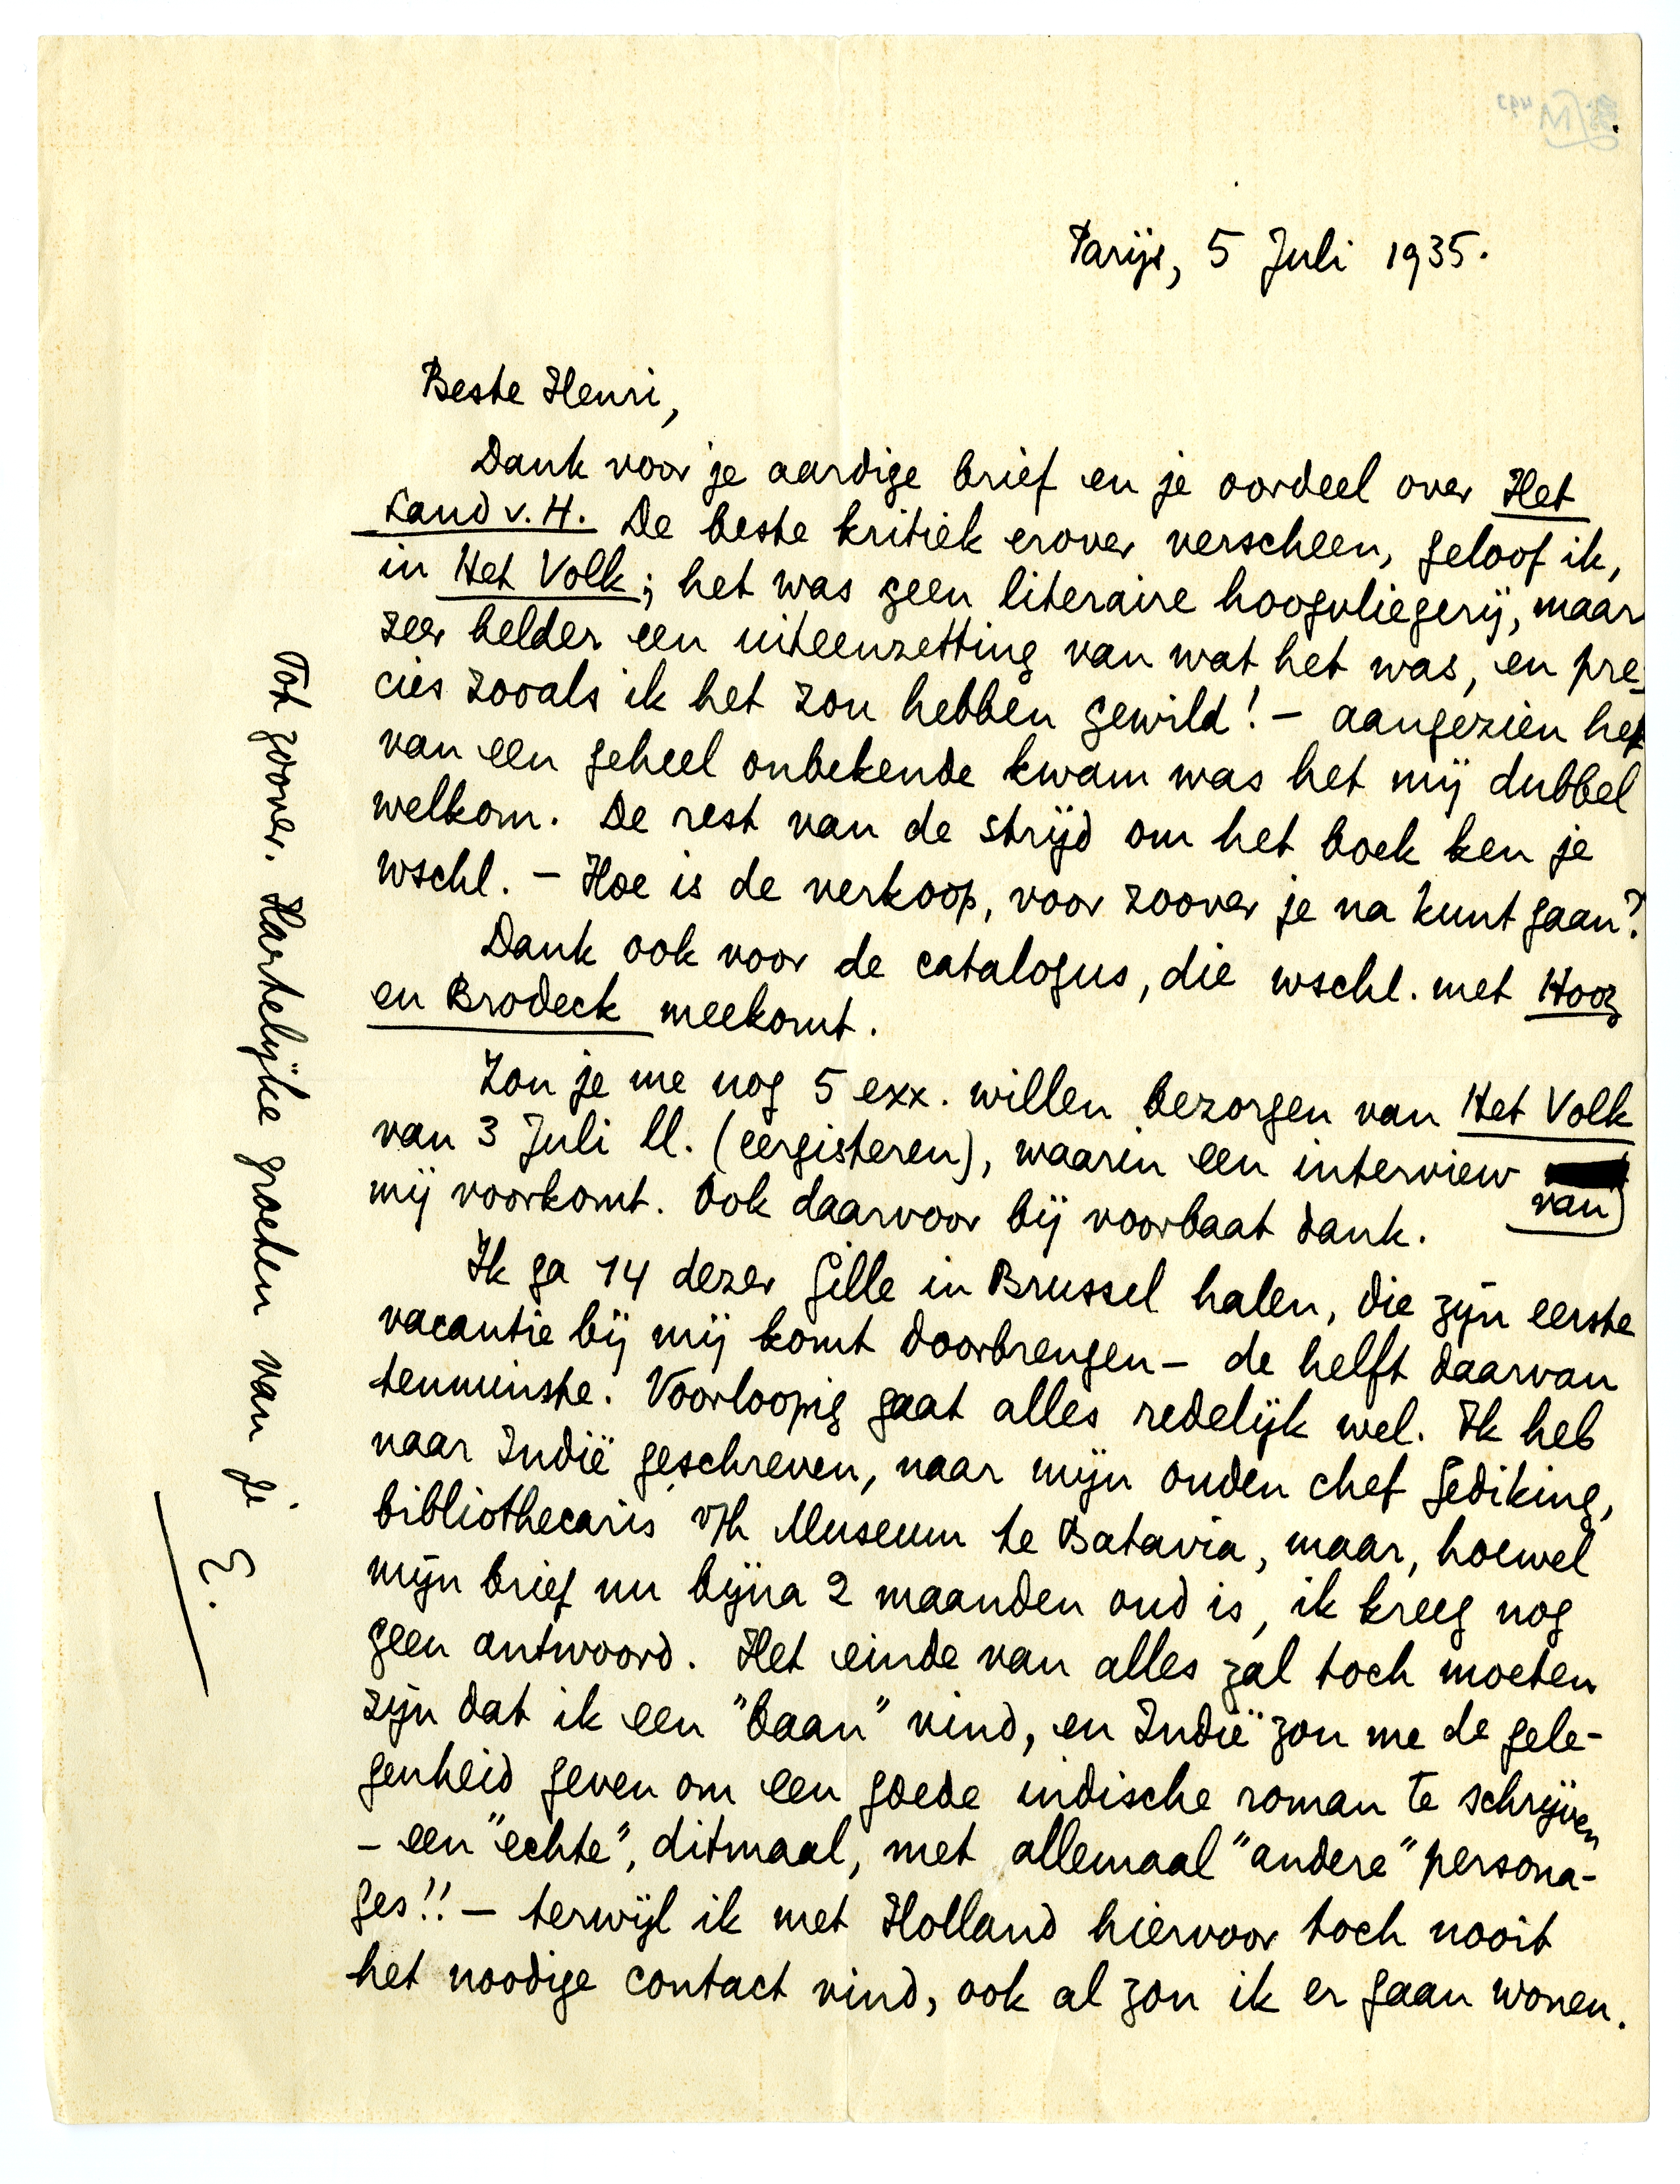 Parijs, 5 Juli 1935.
Beste Henri,
Dank voor je aardige brief en je oordeel over Het
Land v. H. De beste kritiek erover verscheen, geloof ik,
in Het Volk; het was geen literaire hoogvliegerij, maar
zeer helder een uiteenzetting van wat het was, en pre-
cies zooals ik het zou hebben gewild! – aangezien het
van een geheel onbekende kwam was het mij dubbel
welkom. De rest van de strijd om het boek ken je
wschl. – Hoe is de verkoop, voor zoover je na kunt gaan?
Dank ook voor de catalogus, die wschl. met Hoog
en Brodeck meekomt.
Zou je me nog 5 exx. willen bezorgen van Het Volk
van 3 Juli ll. (eergisteren), waarin een interview
van
mij voorkomt. Ook daarvoor bij voorbaat dank.
Ik ga 14 dezer Gille in Brussel halen, die zijn eerste
vacantie bij mij komt doorbrengen – de helft daarvan
tenminste. Voorloopig gaat alles redelijk wel. Ik heb
naar Indië geschreven, naar mijn ouden chef Gediking,
bibliothecaris v/h Museum te Batavia, maar, hoewel
mijn brief nu bijna 2 maanden oud is, ik kreeg nog
geen antwoord. Het einde van alles zal toch moeten
zijn dat ik een "baan" vind, en Indië zou me de gele-
genheid geven om een goede indische roman te schrijven
– een "echte", ditmaal, met allemaal "andere" persona-
ges!! – terwijl ik met Holland hiervoor toch nooit
het noodige contact vind, ook al zou ik er gaan wonen.
Tot zoover. Hartelijke groeten van je
E.